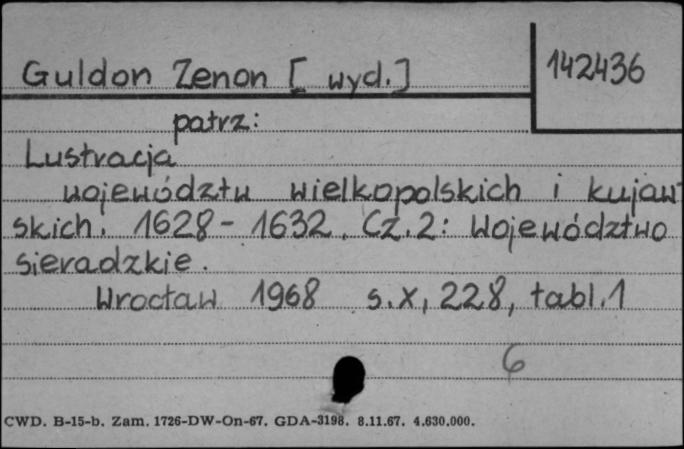 Guldon Zenon [ wyd.]
142436
patrz:
Lustracja
województw wielkopolskich i kujaw-
skich. 1628 - 1632. Cz. 2: Województwo
sieradzkie.
Wrocław 1968 s. X, 228, tabl. 1
6
CWD. B-15-b. Zam. 1726-DW-On-67. GDA-3198. 8.11.67. 4.630.000.